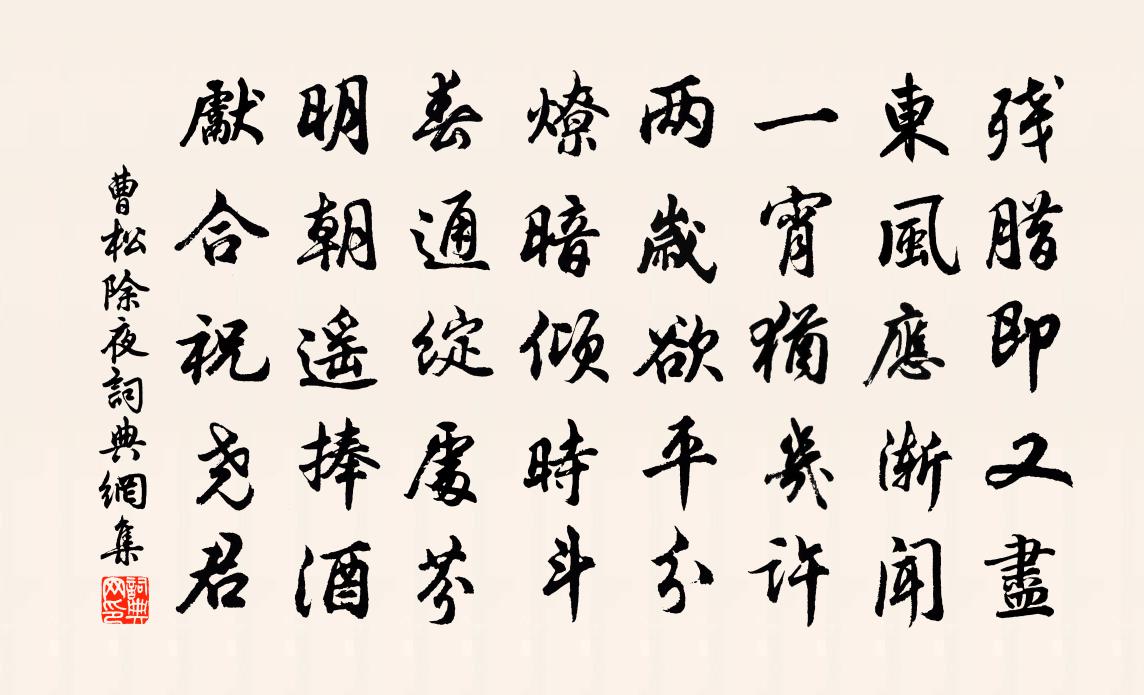 残腊即又盡
東風應渐闻
一宵猶幾許
两歲欲平分
燎暗倾時斗
春通綻處芬
明朝遥捧酒
獻合祝尧君
曹松除夜詞典網集
詞典网印